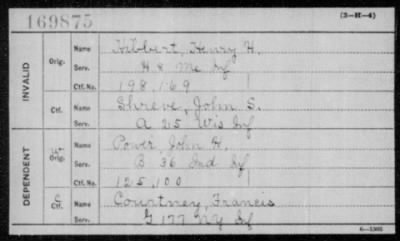 169875
(3-H-4)
INVALID
Orig.
Name Hibbert, Henry H.
Serv. H 8 Me Inf
Ctf. No. 198,169
Ctf.
Name Shreve, John S.
Serv. A 25 Wis Inf
DEPENDENT
Orig.
Name Power, John H.
Serv. B 36 Ind Inf
Ctf. No. 125,100
C Ctf.
Name Courtney, Francis
Serv. G 177 NY Inf